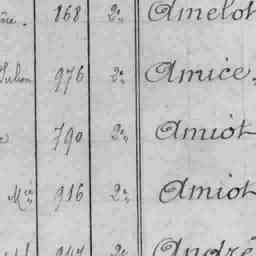 168 2e Amelot
Julien 976 2e Amice
790 2e Amiot
Mie 916 2e Amiot
947 2e André